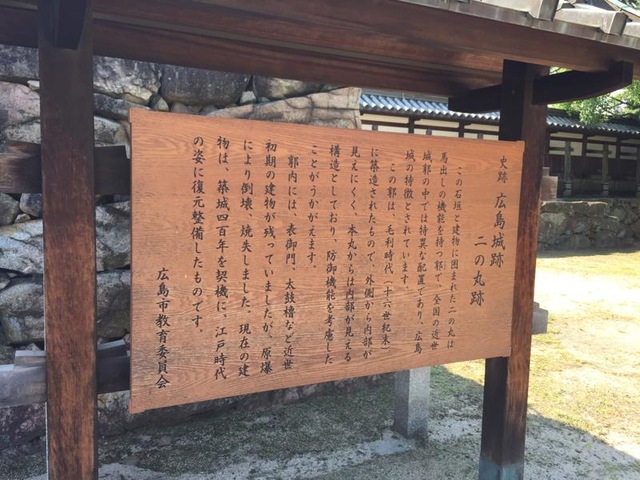 史跡 広島城跡
二の丸跡
この石垣と建物に囲まれた二の丸は
馬出しの機能を持つ郭で、全国の近世
城郭の中では特異な配置であり、広島
城の特徴とされています。
この郭は、毛利時代(十六世紀末)
に築造されたもので、外側から内部が
見えにくく、本丸からは内部が見える
構造としており、防御機能を考慮した
ことがうかがえます。
郭内には、表御門、太鼓櫓など近世
初期の建物が残っていましたが、原爆
により倒壊、焼失しました。現在の建
物は、築城四百年を契機に、江戸時代
の姿に復元整備したものです。
広島市教育委員会